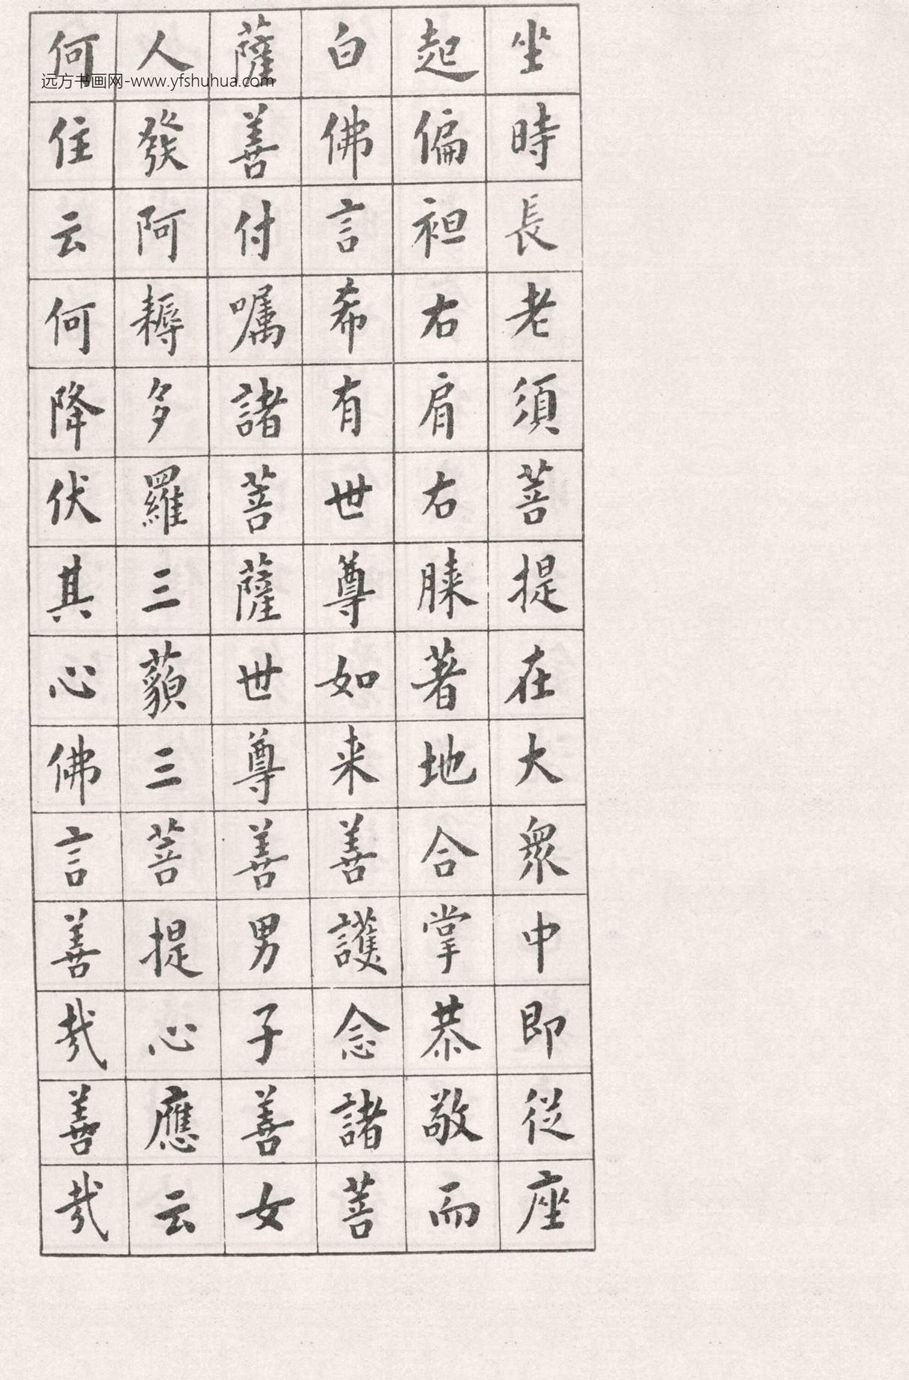 坐時長老須菩提在大衆中即從座
起偏袒右肩右膝著地合掌恭敬而
白佛言希有世尊如来善護念諸菩
薩善付嘱諸菩薩世尊善男子善女
人發阿耨多羅三藐三菩提心應云
何住云何降伏其心佛言善哉善哉
远方书画网-www.yfshuhua.com